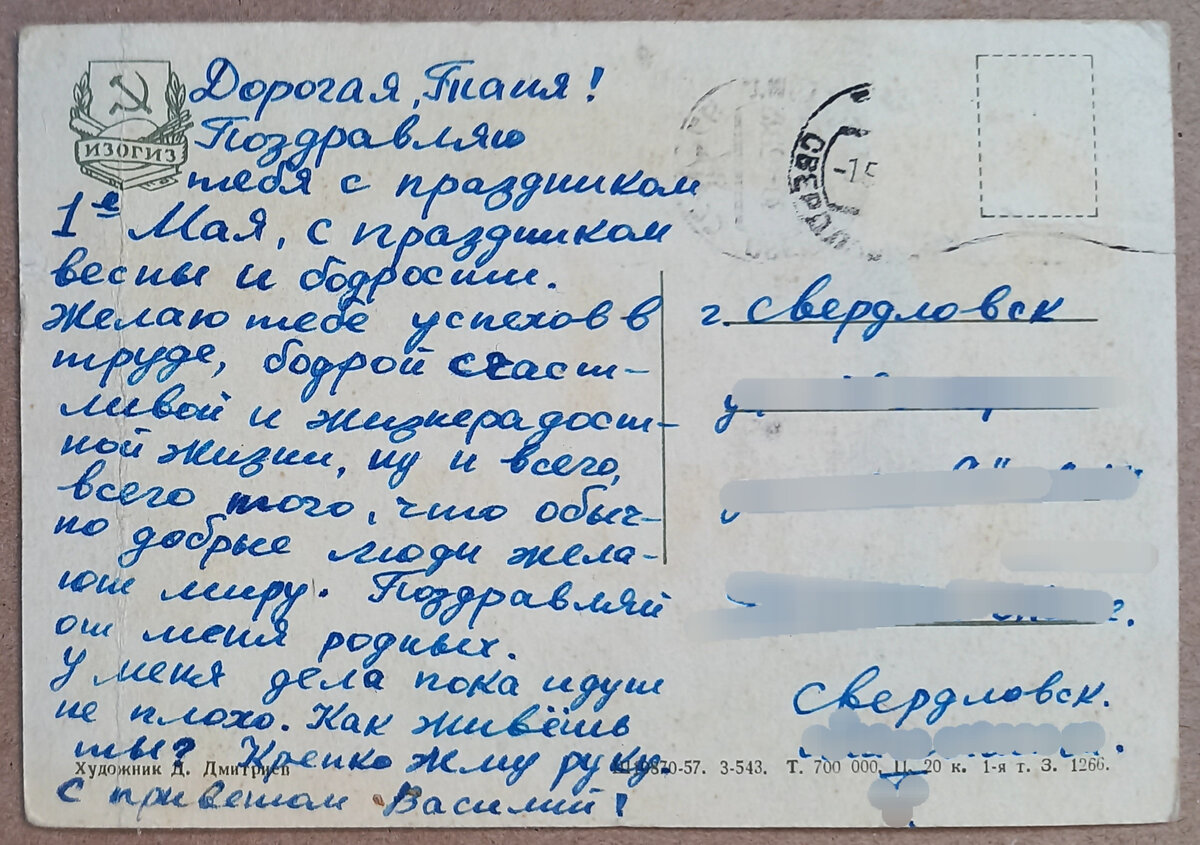 ИЗОГИЗ
Дорогая, Таня!
Поздравляю
тебя с праздником
1е Мая, с праздником
весны и бодрости.
Желаю тебе успехов в
труде, бодрой счаст-
ливой и жизнерадост-
ной жизни, ну и всего,
всего того, что обыч-
но добрые люди жела-
ют миру. Поздравляй
от меня родных.
У меня дела пока идут
не плохо. Как живёшь
ты? Крепко жму руку.
С приветом Василий!
Художник Д. Дмитриев
СВЕРД
-15
г. Свердловск
Свердловск.
9870-57. З-543. Т. 700 000. Ц. 20 к. 1-я т. З. 1266.